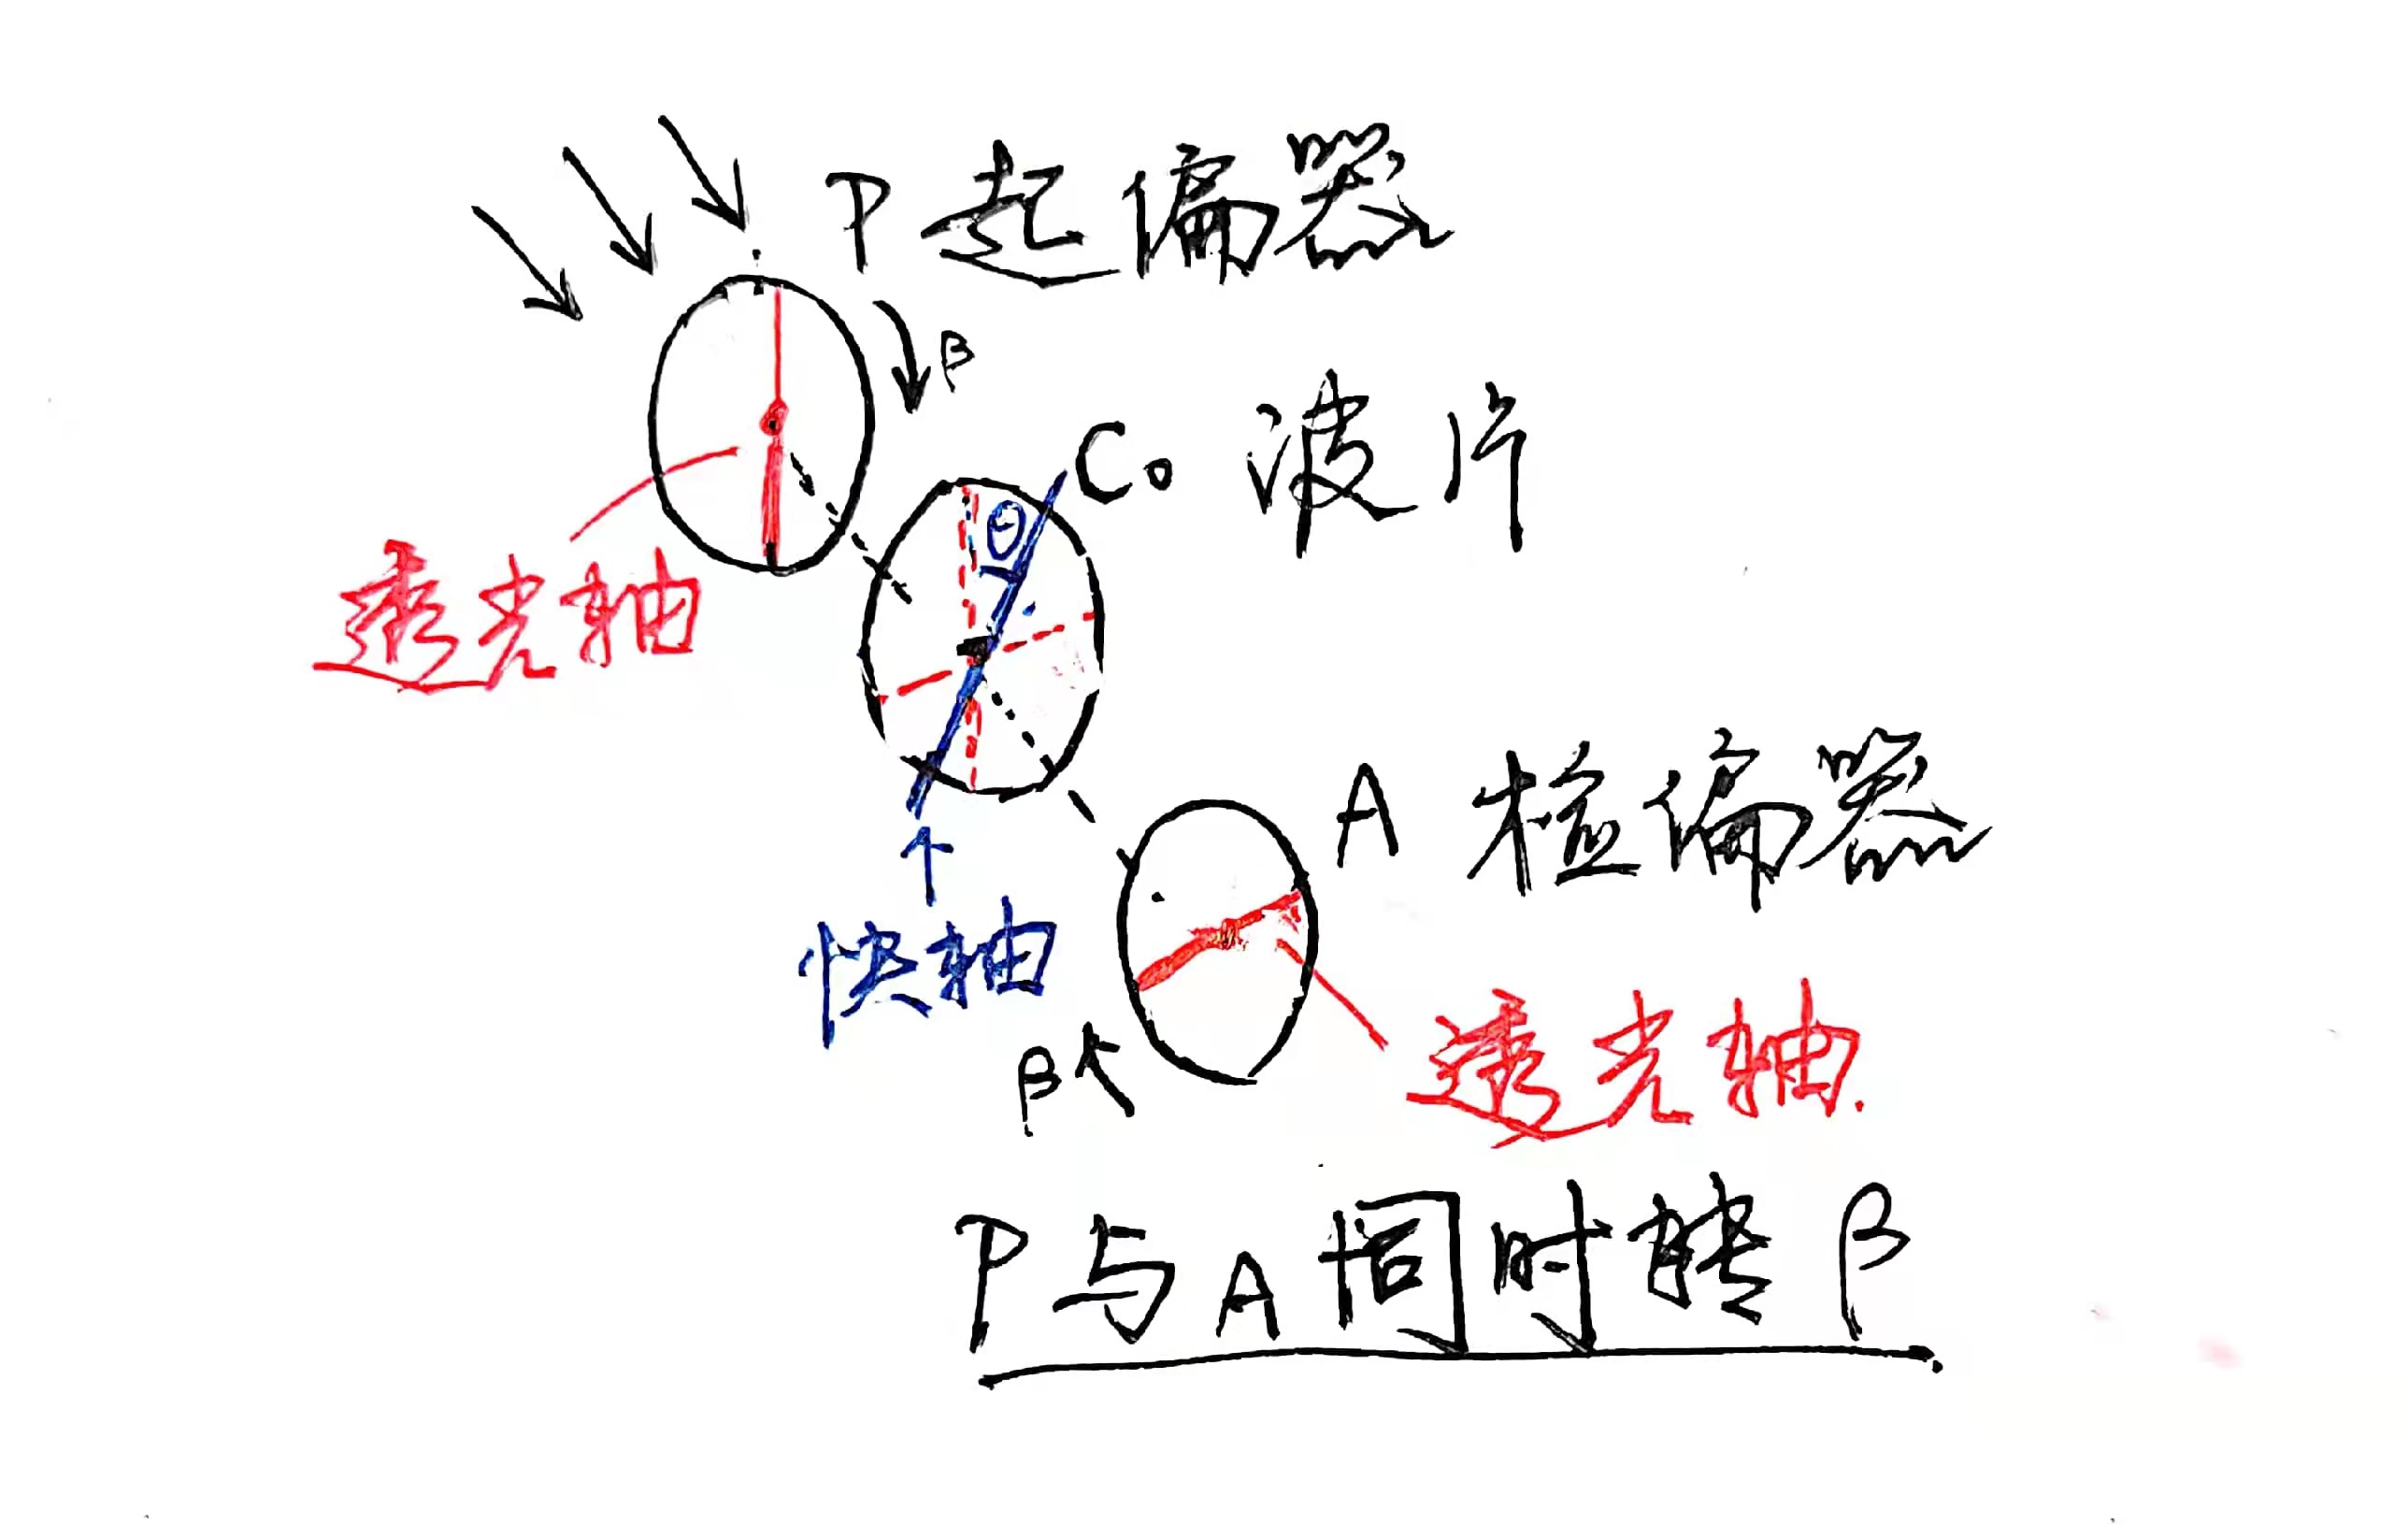 P 起偏器
β
C₀ 波片
θ
透光轴
A 检偏器
快轴
β
透光轴.
P与A同时转β